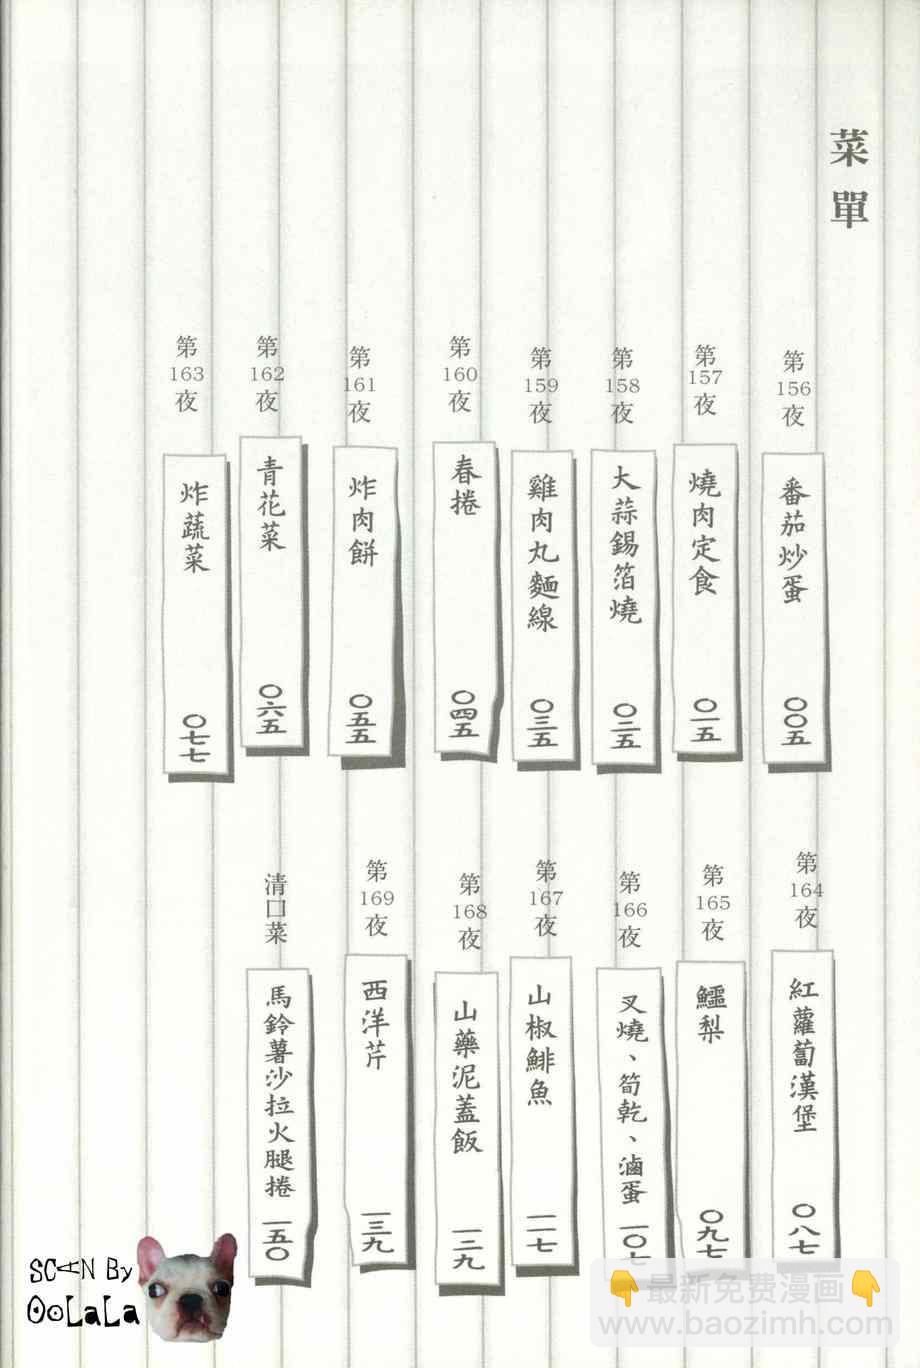 菜單
第156夜
番茄炒蛋
〇〇五
第157夜
燒肉定食
〇一五
第158夜
大蒜錫箔燒
〇二五
第159夜
雞肉丸麵線
〇三五
第160夜
春捲
〇四五
第161夜
炸肉餅
〇五五
第162夜
青花菜
〇六五
第163夜
炸蔬菜
〇七七
第164夜
紅蘿蔔漢堡
〇八七
第165夜
鱷梨
〇九七
第166夜
叉燒、筍乾、滷蛋
一〇七
第167夜
山椒鯡魚
一一七
第168夜
山藥泥蓋飯
一二九
第169夜
西洋芹
一三九
清口菜
馬鈴薯沙拉火腿捲
一五〇
SCAN By
OoLaLa
👇最新免费漫画👇
www.baozimh.com